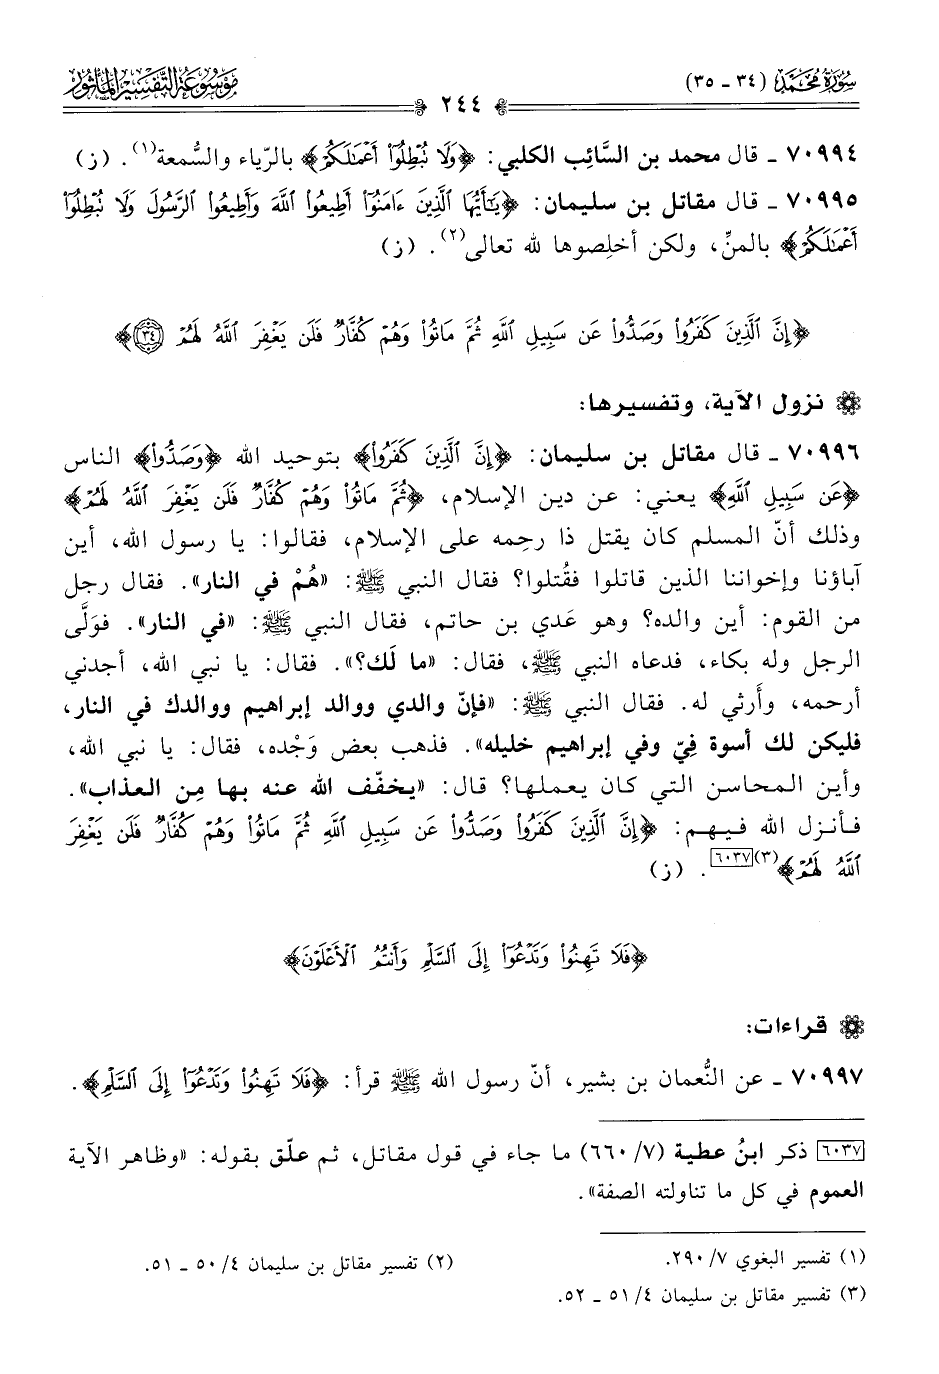 سورة محمد (٣٤ - ٣٥)
٢٤٤
موسوعة التفسير المأثور
٧٠٩٩٤ - قال محمد بن السَّائِب الكلبي: ﴿وَلَا نُبْطِلُوٓا۟ أَعْمَٰلَكُمْ﴾ بالرّياء والسُّمعة(١). (ز)
٧٠٩٩٥ - قال مقاتل بن سليمان: ﴿يَٰٓأَيُّهَا الَّذِينَ ءَامَنُوٓا۟ أَطِيعُوا۟ اللَّهَ وَأَطِيعُوا۟ الرَّسُولَ وَلَا نُبْطِلُوٓا۟
أَعْمَٰلَكُمْ﴾ بالمنِّ، ولكن أخلِصوها لله تعالى(٢). (ز)
﴿إِنَّ الَّذِينَ كَفَرُوا۟ وَصَدُّوا۟ عَن سَبِيلِ اللَّهِ ثُمَّ مَاتُوا۟ وَهُمْ كُفَّارٌ فَلَن يَغْفِرَ اللَّهُ لَهُمْ ٣٤﴾
نزول الآية، وتفسيرها:
٧٠٩٩٦ - قال مقاتل بن سليمان: ﴿إِنَّ الَّذِينَ كَفَرُوا۟﴾ بتوحيد الله ﴿وَصَدُّوا۟﴾ الناس
﴿عَن سَبِيلِ اللَّهِ﴾ يعني: عن دين الإسلام، ﴿ثُمَّ مَاتُوا۟ وَهُمْ كُفَّارٌ فَلَن يَغْفِرَ اللَّهُ لَهُمْ﴾
وذلك أنّ المسلم كان يقتل ذا رحِمه على الإسلام، فقالوا: يا رسول الله، أين
آباؤنا وإخواننا الذين قاتلوا فقُتلوا؟ فقال النبي ﷺ: «هُمْ في النار». فقال رجل
من القوم: أين والده؟ وهو عَدي بن حاتم، فقال النبي ﷺ: «في النار». فوَلَّى
الرجل وله بكاء، فدعاه النبي ﷺ، فقال: «ما لَك؟». فقال: يا نبي الله، أجدني
أرحمه، وأَرثي له. فقال النبي ﷺ: «فإنّ والدي ووالد إبراهيم ووالدك في النار،
فليكن لك أسوة فِيّ وفي إبراهيم خليله». فذهب بعض وَجْده، فقال: يا نبي الله،
وأين المحاسن التي كان يعملها؟ قال: «يخفّف الله عنه بها مِن العذاب».
فأنزل الله فيهم: ﴿إِنَّ الَّذِينَ كَفَرُوا۟ وَصَدُّوا۟ عَن سَبِيلِ اللَّهِ ثُمَّ مَاتُوا۟ وَهُمْ كُفَّارٌ فَلَن يَغْفِرَ
اللَّهُ لَهُمْ﴾(٣)٦٠٣٧. (ز)
﴿فَلَا تَهِنُوا۟ وَتَدْعُوٓا۟ إِلَى السَّلْمِ وَأَنتُمُ الْأَعْلَوْنَ﴾
قراءات:
٧٠٩٩٧ - عن النُّعمان بن بشير، أنّ رسول الله ﷺ قرأ: ﴿فَلَا تَهِنُوا۟ وَتَدْعُوٓا۟ إِلَى السَّلْمِ﴾.
٦٠٣٧ ذكر ابنُ عطية (٦٦٠/٧) ما جاء في قول مقاتل، ثم علّق بقوله: «وظاهر الآية
العموم في كل ما تناولته الصفة».
(١) تفسير البغوي ٢٩٠/٧.
(٢) تفسير مقاتل بن سليمان ٥٠/٤ - ٥١.
(٣) تفسير مقاتل بن سليمان ٥١/٤ - ٥٢.